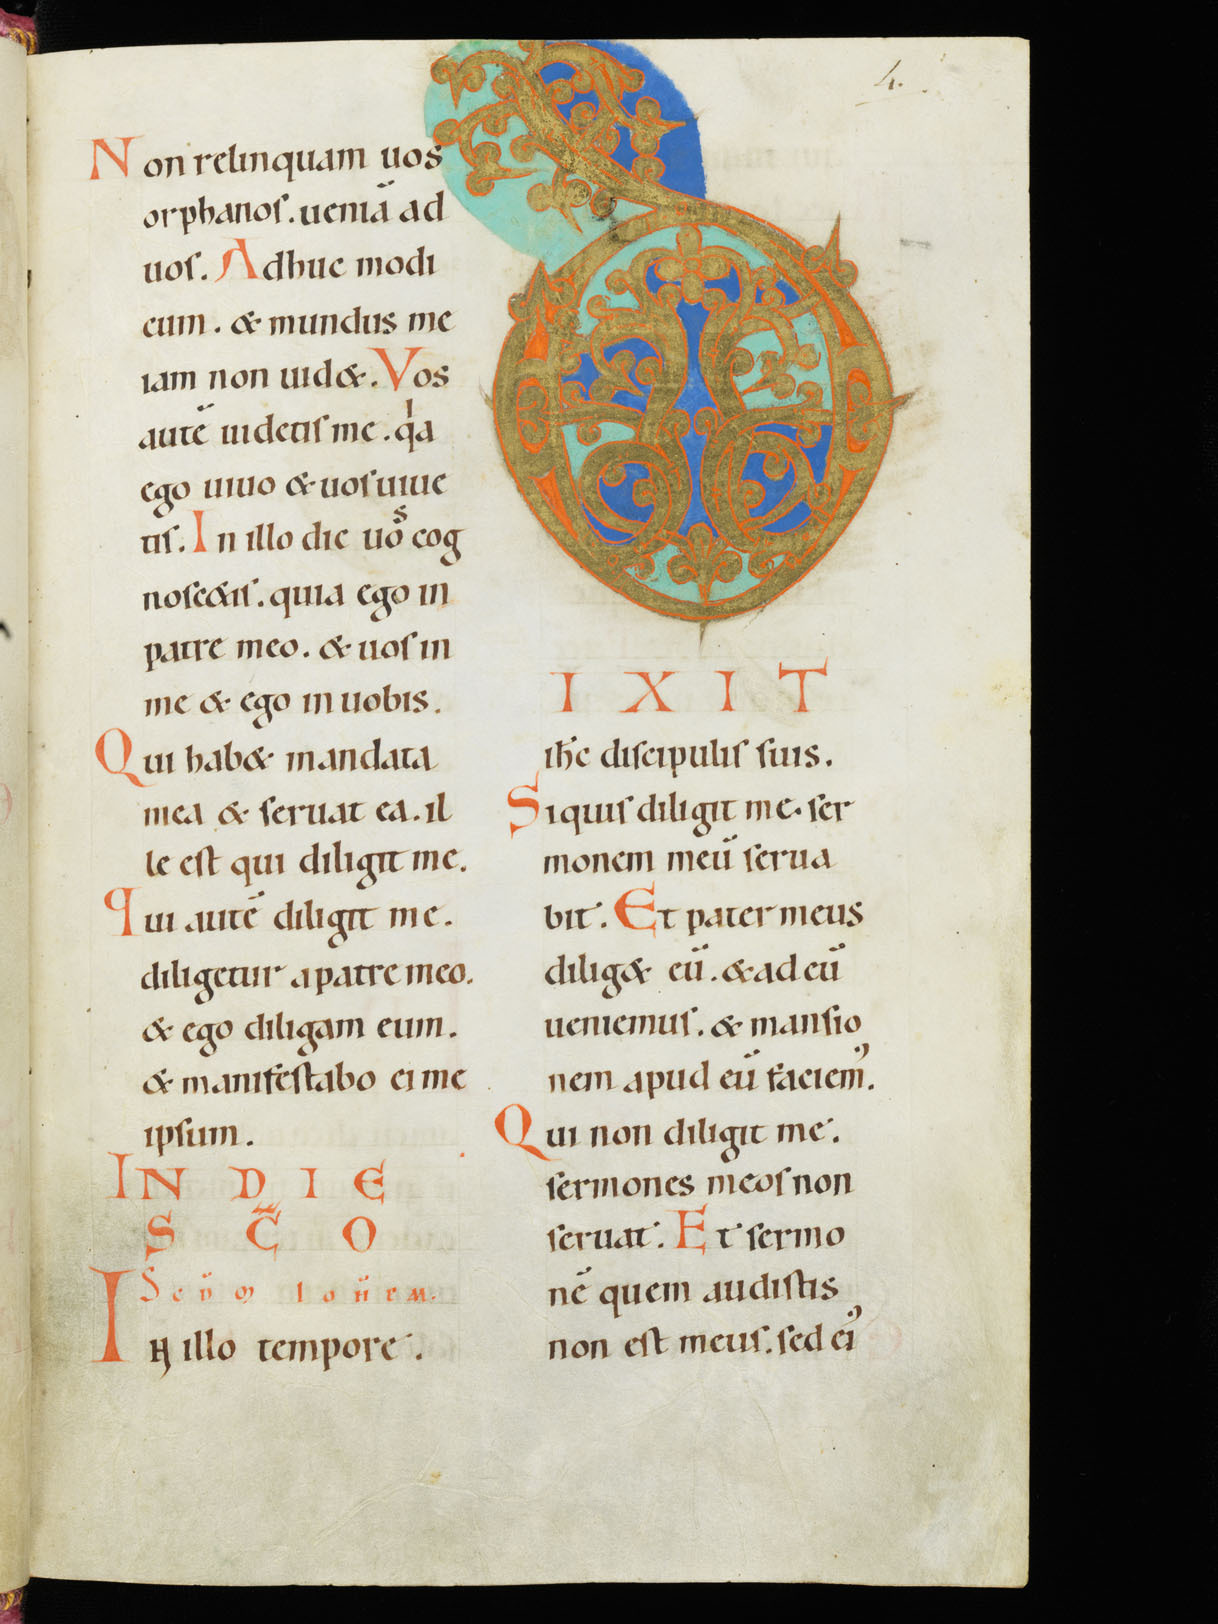 4.
Non relinquam uos
orphanos. ueniā ad
uos. Adhuc modi
cum. & mundus me
iam non uid&. Vos
autē uidetis me. qia
ego uiuo & uos uiue
tis. In illo die uos cog
nosc&is. quia ego in
patre meo. & uos in
me & ego in uobis.
Qui hab& mandata
mea & seruat ea. il
le est qui diligit me.
qui autē diligit me.
diligetur a patre meo.
& ego diligam eum.
& manifestabo ei me
ipsum.
IN DIE
S C̄O
Scd̄m Ioh̄em.
In illo tempore.
DIXIT
ih̄c discipulis suis.
Si quis diligit me. ser
monem meū serua
bit. Et pater meus
dilig& eū. & ad eū
ueniemus. & mansio
nem apud eū faciemꝰ.
Qui non diligit me.
sermones meos non
seruat. Et sermo
nē quem audistis
non est meus. sed eiꝰ